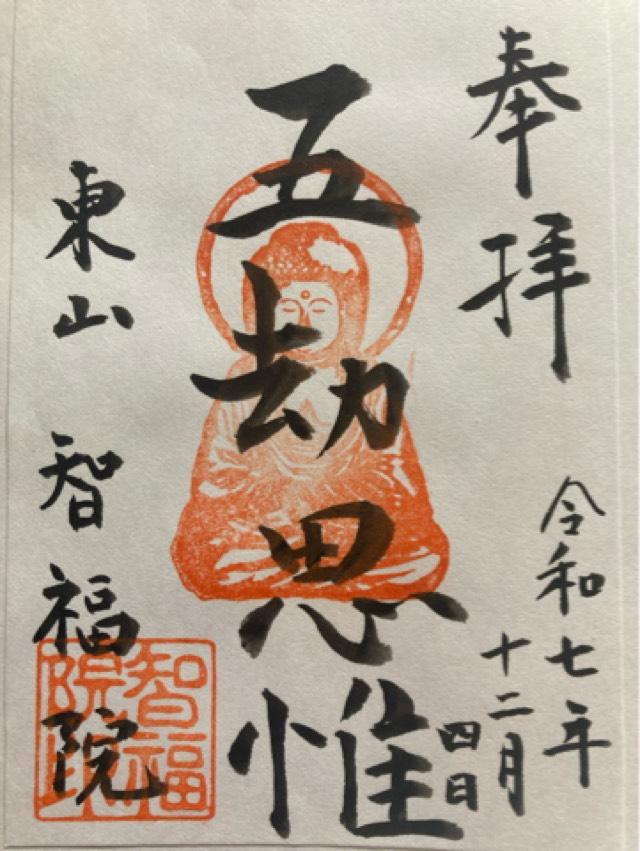 奉拝
令和七年
十二月
四日
五劫思惟
東山 智福院
智福
院印